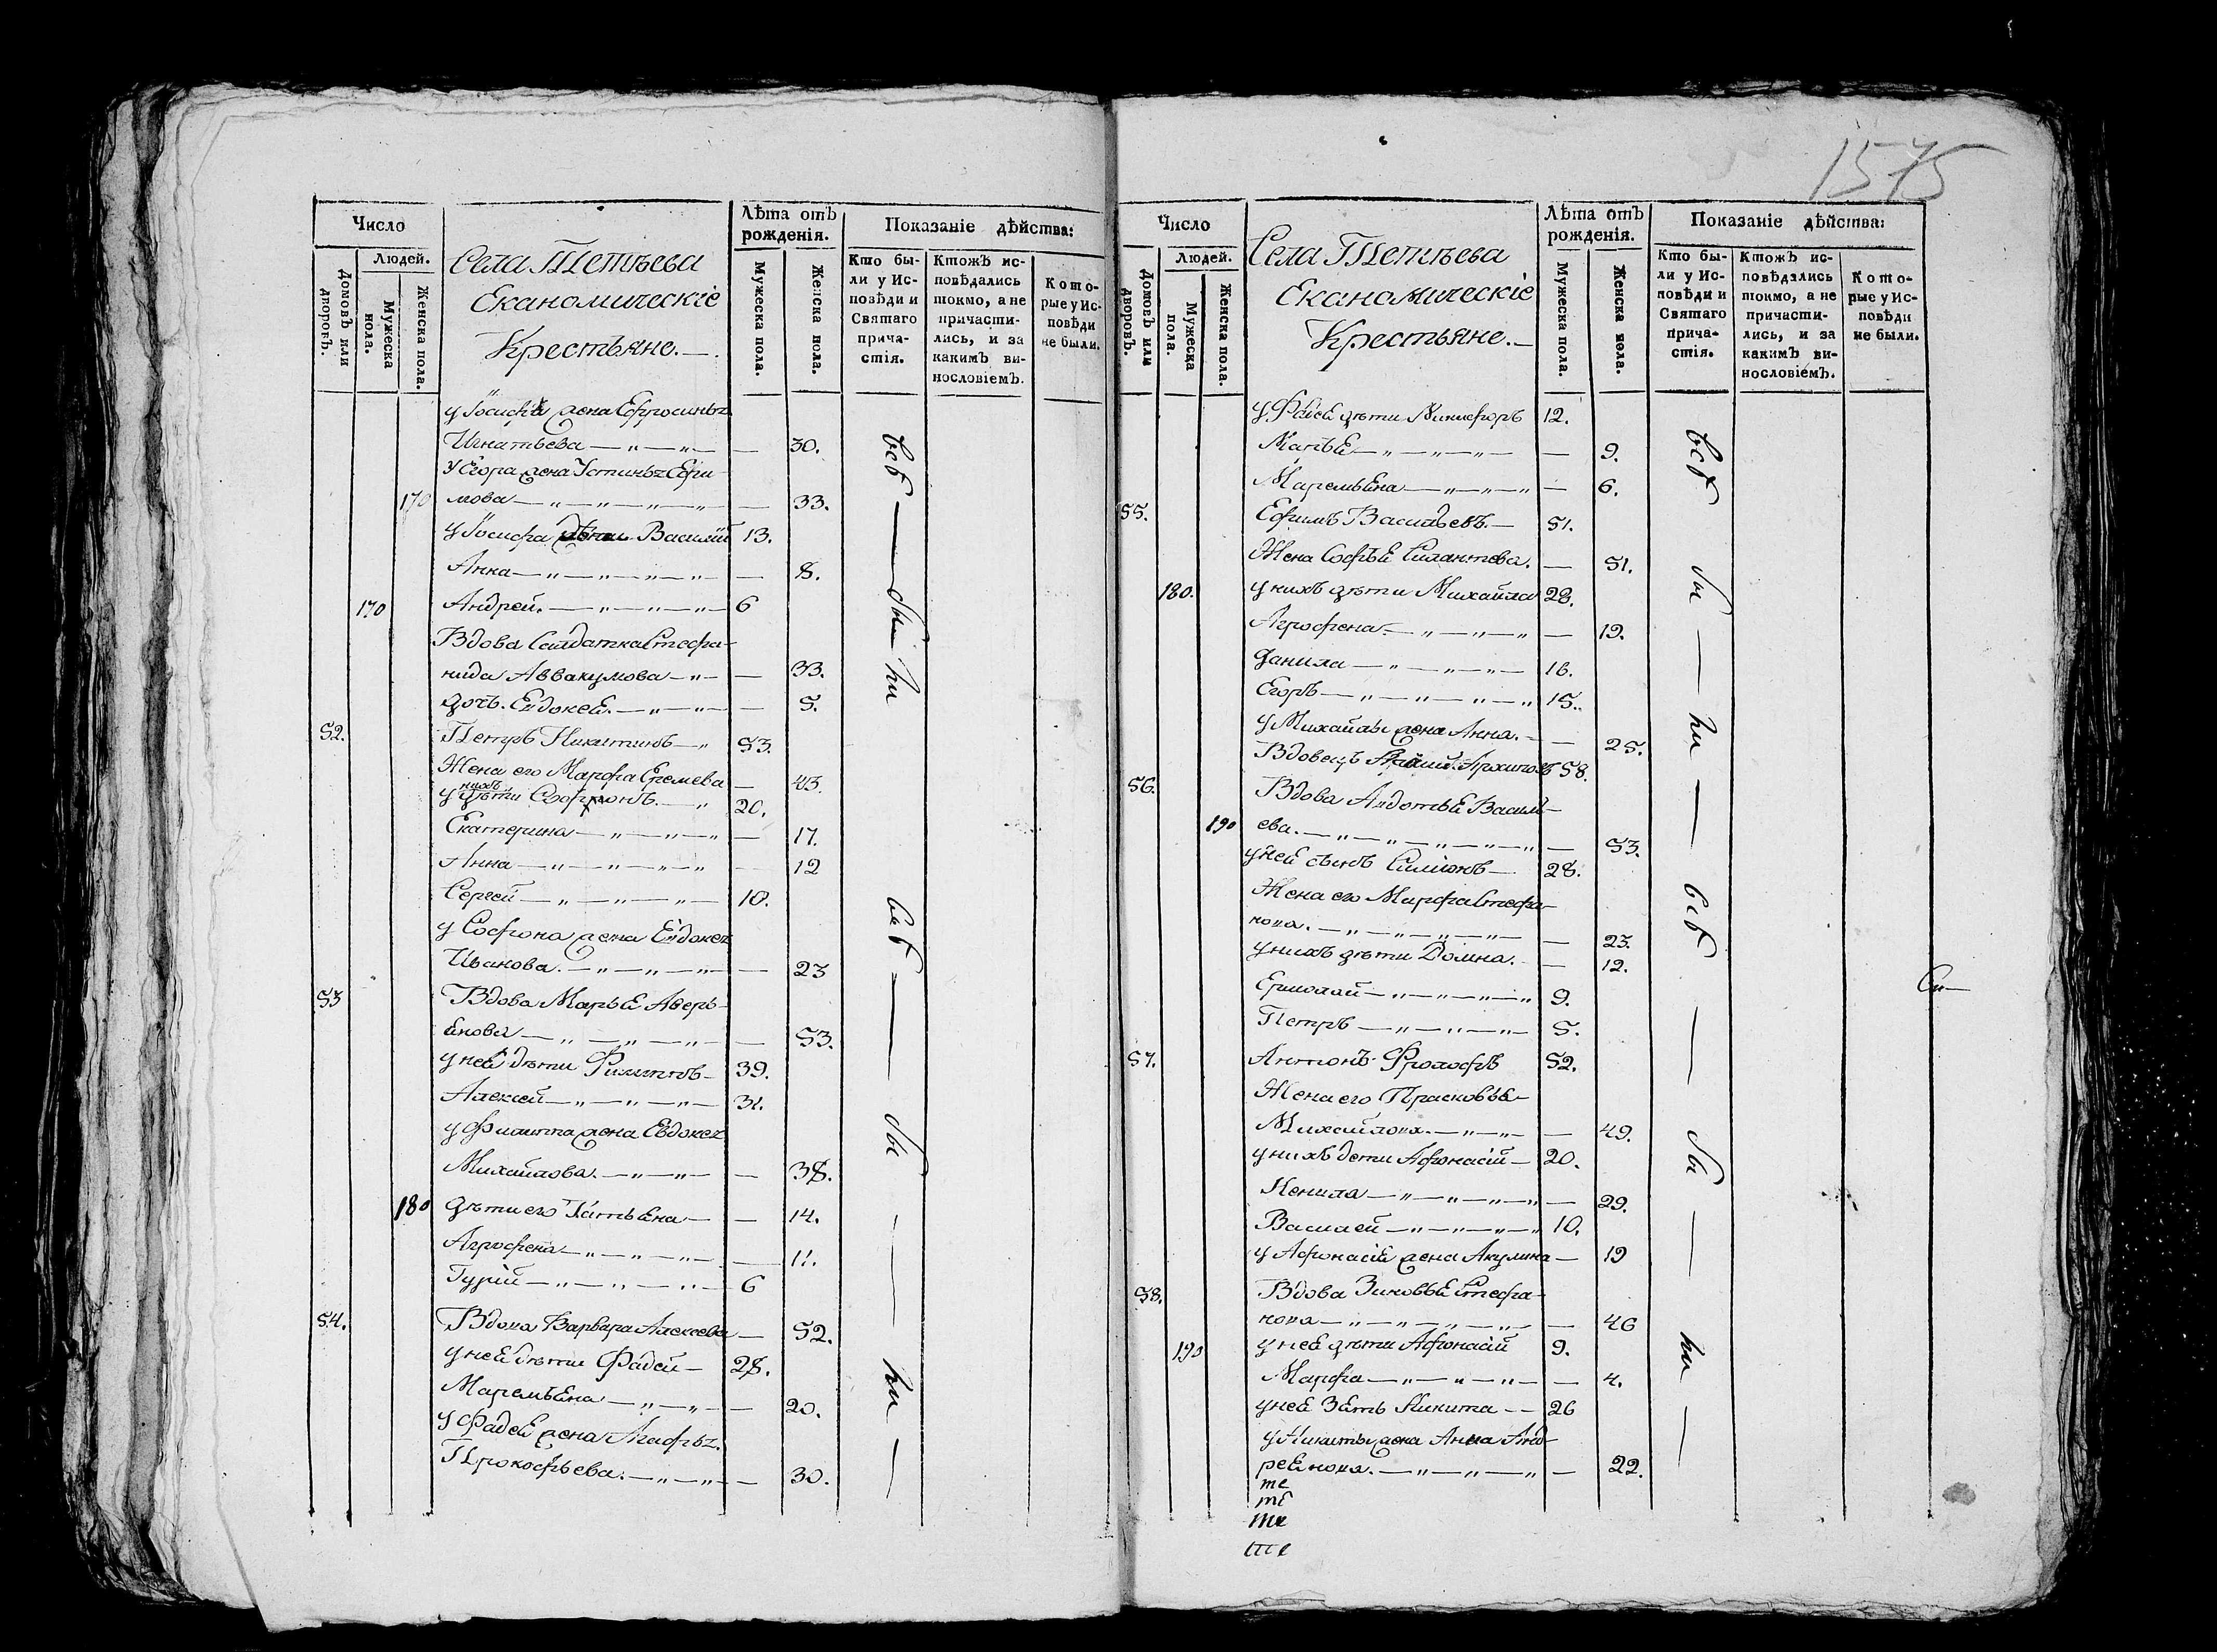 Число
Людей.
Домовъ или дворовъ.
Мужеска пола.
Женска пола.
Села
Екано​мическіе
Крестьяне.—
Лѣта отъ рожденія.
Мужеска пола.
Женска пола.
Показаніе дѣйства:
Кто бы-
ли у Ис-
повѣди и
Святаго
прича-
стія.
Ктожъ ис-
повѣдались
токмо, а не
причасти-
лись, и за
какимъ ви-
нословіемъ.
Кото-
рые у Ис-
повѣди
не были.
у Іосифа жена Ефросинья
Игнатьева — 30.
у Егора жена Устинья Ефи-
170 мова — 33.
у Іосифа дѣти Василій 13.
Анна — 8.
170 Андрей. — 6
Вдова Салдатка Стефа-
нида Аввакумова — 33.
дочь Евдокея. — 5.
52. Петръ Никитинъ — 53.
Жена его Марфа Еремева — 43.
у нихъ дѣти Софронъ. — 20.
Екатерина — 17.
Анна — 12
Сергей — 10.
у Софрона жена Евдокея
Иванова. — 23
53 Вдова Марья Аверь-
янова — 53.
у нея дѣти Филиппъ — 39.
Алексей — 31.
у Филиппа жена Евдокея
Михайлова. — 38.
180 дѣти его Татьяна — 14.
Агрофена — 11.
Гурій — 6
54. Вдова Варвара Алексеева — 52.
у нея дѣти Фадей — 28.
Маремьяна — 20.
у Фадея жена Агафья
Прокофьева. — 30.
всѣ — бы — ли
всѣ — бы — ли —
1575
Число
Людей.
Домовъ или дворовъ.
Мужеска пола.
Женска пола.
Села
Еканомическіе
Крестьяне.—
Лѣта отъ рожденія.
Мужеска пола.
Женска пола.
Показаніе дѣйства:
Кто бы-
ли у Ис-
повѣди и
Святаго
прича-
стія.
Ктожъ ис-
повѣдались
токмо, а не
причасти-
лись, и за
какимъ ви-
нословіемъ.
Кото-
рые у Ис-
повѣди
не были.
у Фадея дѣти Никифоръ 12.
Марья — 9.
Маремьяна — 6.
55. Ефимъ Васильевъ. — 51.
Жена Софья Силантева. — 51.
180. у нихъ дѣти Михайла 28.
Агрофена — 19.
Данила — 16.
Егоръ — 15.
у Михайлы жена Анна. — 25.
Вдовецъ Архиповъ 58.
56. Вдова Авдотья Василь-
190 ева. — 53.
у ней сынъ Симіонъ — 28.
Жена его Марфа Стефа-
нова. — 23.
у нихъ дѣти Домна. — 12.
Ермолай — 9.
Петръ — 5.
57. Антонъ Фролофъ 52.
Жена его Прасковья
Михайлова. — 49.
у нихъ дети Афонасій — 20.
Ненила — 29.
Василей — 10.
у Афонасія жена Акулина — 19
58. Вдова Зиновья Стефа-
нова — 46
190 у нея дѣти Афонасій 9.
Марфа — 4.
у нея Зять Никита — 26
у Никиты жена Анна Анд-
реянова. — 22.
те
те
те
те
всѣ бы — ли —
всѣ — бы — ли —